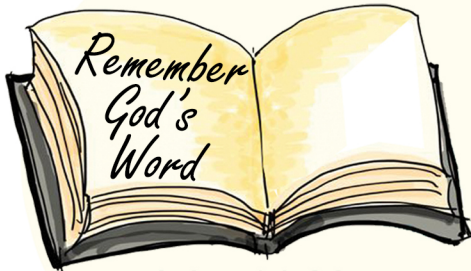 Remember
God's
Word